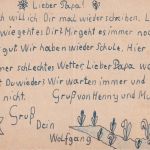 Lieber Papa!
Ich will ich Dir mal wieder schreiben. L
wie geht es Dir? Mir geht es immer noch
gut Wir haben wieder Schule. Hier
mer schlechtes Wetter. Lieber Papa wa
st Du wieder? Wir warten immer und
nicht. Gruß von Henny und Mu
Gruß
Dein
Wolfgang